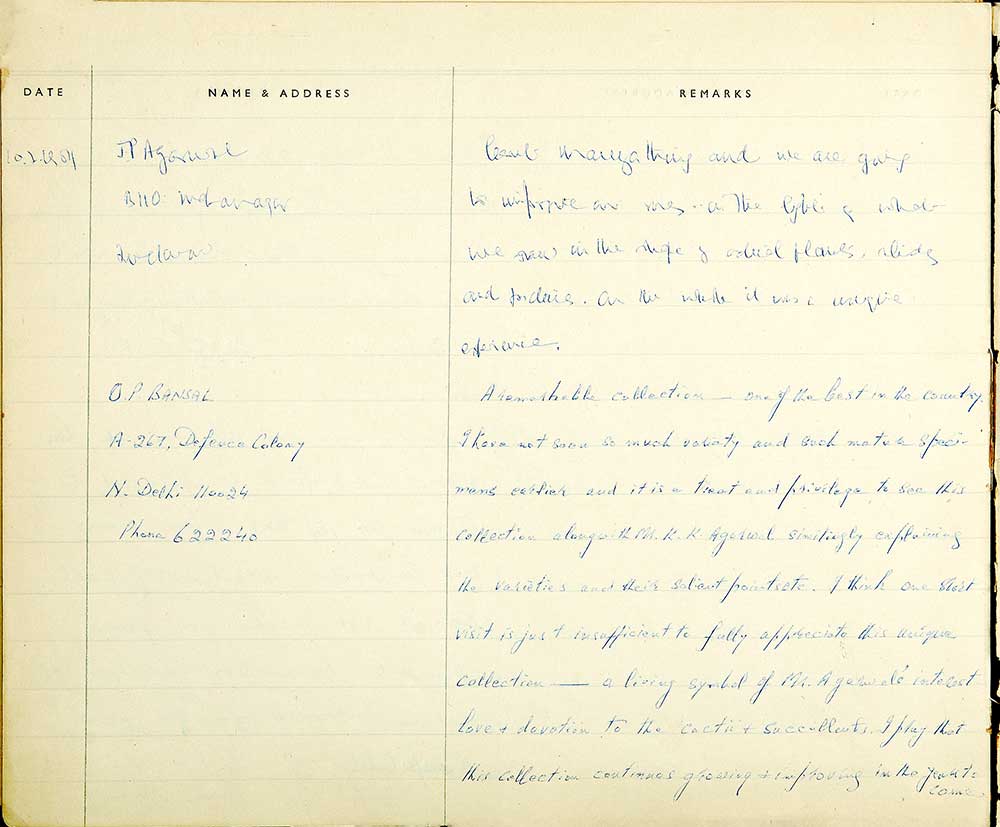 DATE
NAME & ADDRESS
REMARKS
J P Agarwal
and we are going
to improve our
we saw in the shape of plants, slides
and . On the whole it was a unique
experience.
O.P. BANSAL
A-267, Defence Colony
N. Delhi 110024
Phone 622240
A remarkable collection — one of the best in the country.
I have not seen so much variety and such mature speci-
mens earlier and it is a treat and privilege to see this
collection alongwith Mr. K. K. Agarwal smilingly explaining
the varieties and their salient points etc. I think one short
visit is just insufficient to fully appreciate this unique
collection — a living symbol of Mr. Agarwal's interest
love + devotion to the cactii + succullents. I pray that
this collection continues growing + improving in the years to
come.